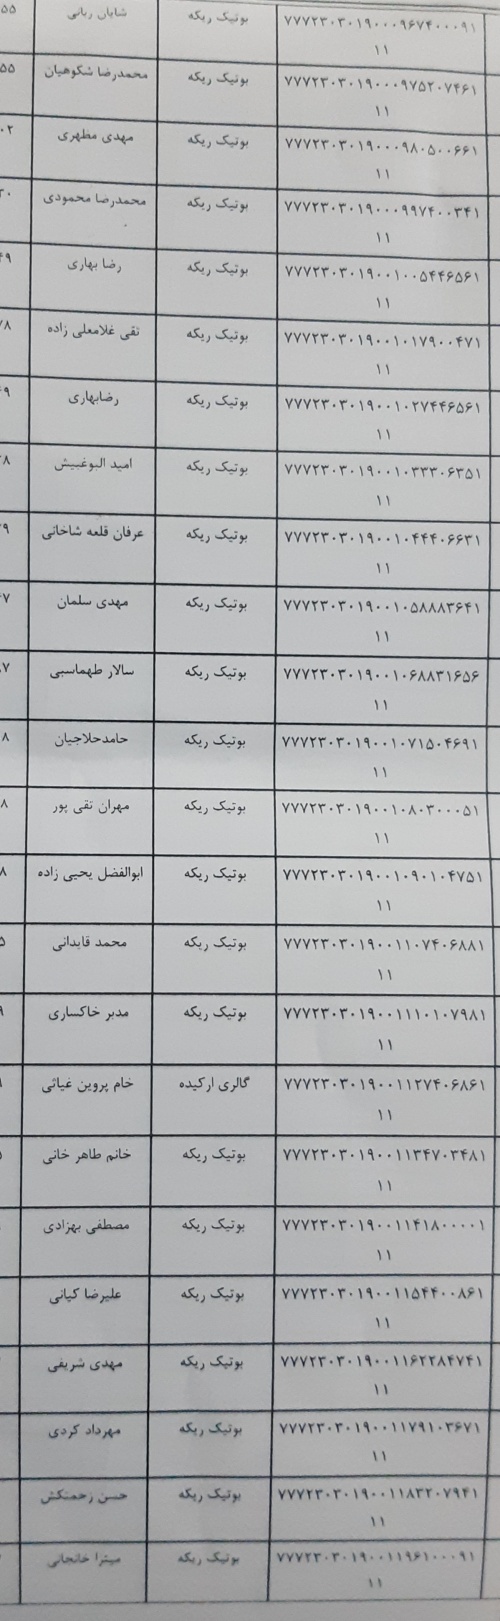 ۷۷۷۲۳۰۳۰۱۹۰۰۰۹۶۷۴۰۰۰۹۱ بوتیک ریکه شایان ربانی ۵۵
۱۱
۷۷۷۲۳۰۳۰۱۹۰۰۰۹۷۵۲۰۷۴۶۱ بوتیک ریکه محمدرضا شکوهیان ۵۵
۱۱
۷۷۷۲۳۰۳۰۱۹۰۰۰۹۸۰۵۰۰۶۶۱ بوتیک ریکه مهدی مظهری ۰۲
۱۱
۷۷۷۲۳۰۳۰۱۹۰۰۰۹۹۷۴۰۰۳۴۱ بوتیک ریکه محمدرضا محمودی
۱۱
۷۷۷۲۳۰۳۰۱۹۰۰۱۰۰۵۴۴۶۵۶۱ بوتیک ریکه رضا بهاری
۱۱
۷۷۷۲۳۰۳۰۱۹۰۰۱۰۱۷۹۰۰۴۷۱ بوتیک ریکه تقی غلامعلی زاده
۱۱
۷۷۷۲۳۰۳۰۱۹۰۰۱۰۲۷۴۴۶۵۶۱ بوتیک ریکه رضابهاری
۱۱
۷۷۷۲۳۰۳۰۱۹۰۰۱۰۳۳۳۰۶۳۵۱ بوتیک ریکه امید البوغبیش
۱۱
۷۷۷۲۳۰۳۰۱۹۰۰۱۰۴۴۴۰۶۶۳۱ بوتیک ریکه عرفان قلعه شاخانی
۱۱
۷۷۷۲۳۰۳۰۱۹۰۰۱۰۵۸۸۸۳۶۴۱ بوتیک ریکه مهدی سلمان
۱۱
۷۷۷۲۳۰۳۰۱۹۰۰۱۰۶۸۸۳۱۶۵۶ بوتیک ریکه سالار طهماسبی
۱۱
۷۷۷۲۳۰۳۰۱۹۰۰۱۰۷۱۵۰۴۶۹۱ بوتیک ریکه حامدحلاجیان ۸
۱۱
۷۷۷۲۳۰۳۰۱۹۰۰۱۰۸۰۳۰۰۰۵۱ بوتیک ریکه مهران تقی پور ۸
۱۱
۷۷۷۲۳۰۳۰۱۹۰۰۱۰۹۰۱۰۴۷۵۱ بوتیک ریکه ابوالفضل یحیی زاده ۸
۱۱
۷۷۷۲۳۰۳۰۱۹۰۰۱۱۰۷۴۰۶۸۸۱ بوتیک ریکه محمد قایدانی
۱۱
۷۷۷۲۳۰۳۰۱۹۰۰۱۱۱۰۱۰۷۹۸۱ بوتیک ریکه مدبر خاکساری
۱۱
۷۷۷۲۳۰۳۰۱۹۰۰۱۱۲۷۴۰۶۸۶۱ گالری ارکیده خام پروین غیاثی
۱۱
۷۷۷۲۳۰۳۰۱۹۰۰۱۱۳۴۷۰۳۴۸۱ بوتیک ریکه خانم طاهر خانی
۱۱
۷۷۷۲۳۰۳۰۱۹۰۰۱۱۴۱۸۰۰۰۰۱ بوتیک ریکه مصطفی بهزادی
۱۱
۷۷۷۲۳۰۳۰۱۹۰۰۱۱۵۴۴۰۰۸۶۱ بوتیک ریکه علیرضا کیانی
۱۱
۷۷۷۲۳۰۳۰۱۹۰۰۱۱۶۲۲۸۴۷۴۱ بوتیک ریکه مهدی شریفی
۱۱
۷۷۷۲۳۰۳۰۱۹۰۰۱۱۷۹۱۰۳۶۷۱ بوتیک ریکه مهرداد کردی
۱۱
۷۷۷۲۳۰۳۰۱۹۰۰۱۱۸۳۲۰۷۹۴۱ بوتیک ریکه حسن زحمتکش
۱۱
۷۷۷۲۳۰۳۰۱۹۰۰۱۱۹۶۱۰۰۰۹۱ بوتیک ریکه میترا خانجانی
۱۱